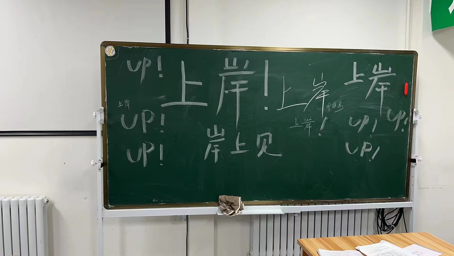 UP!
上岸!
上岸
上岸
上岸
UP!
UP!
岸上见
上岸!
UP!
UP!
UP!